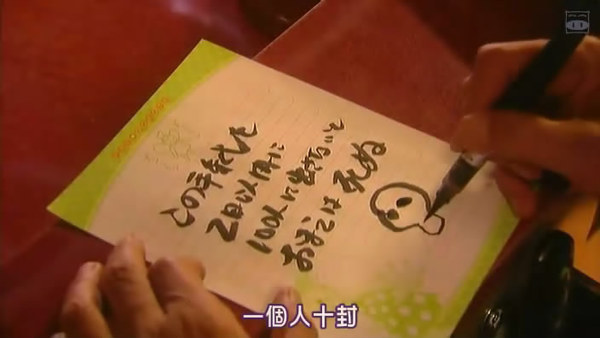 この手紙を
2日以内に
100人に出さないと
おまえは 死ぬ
一個人十封